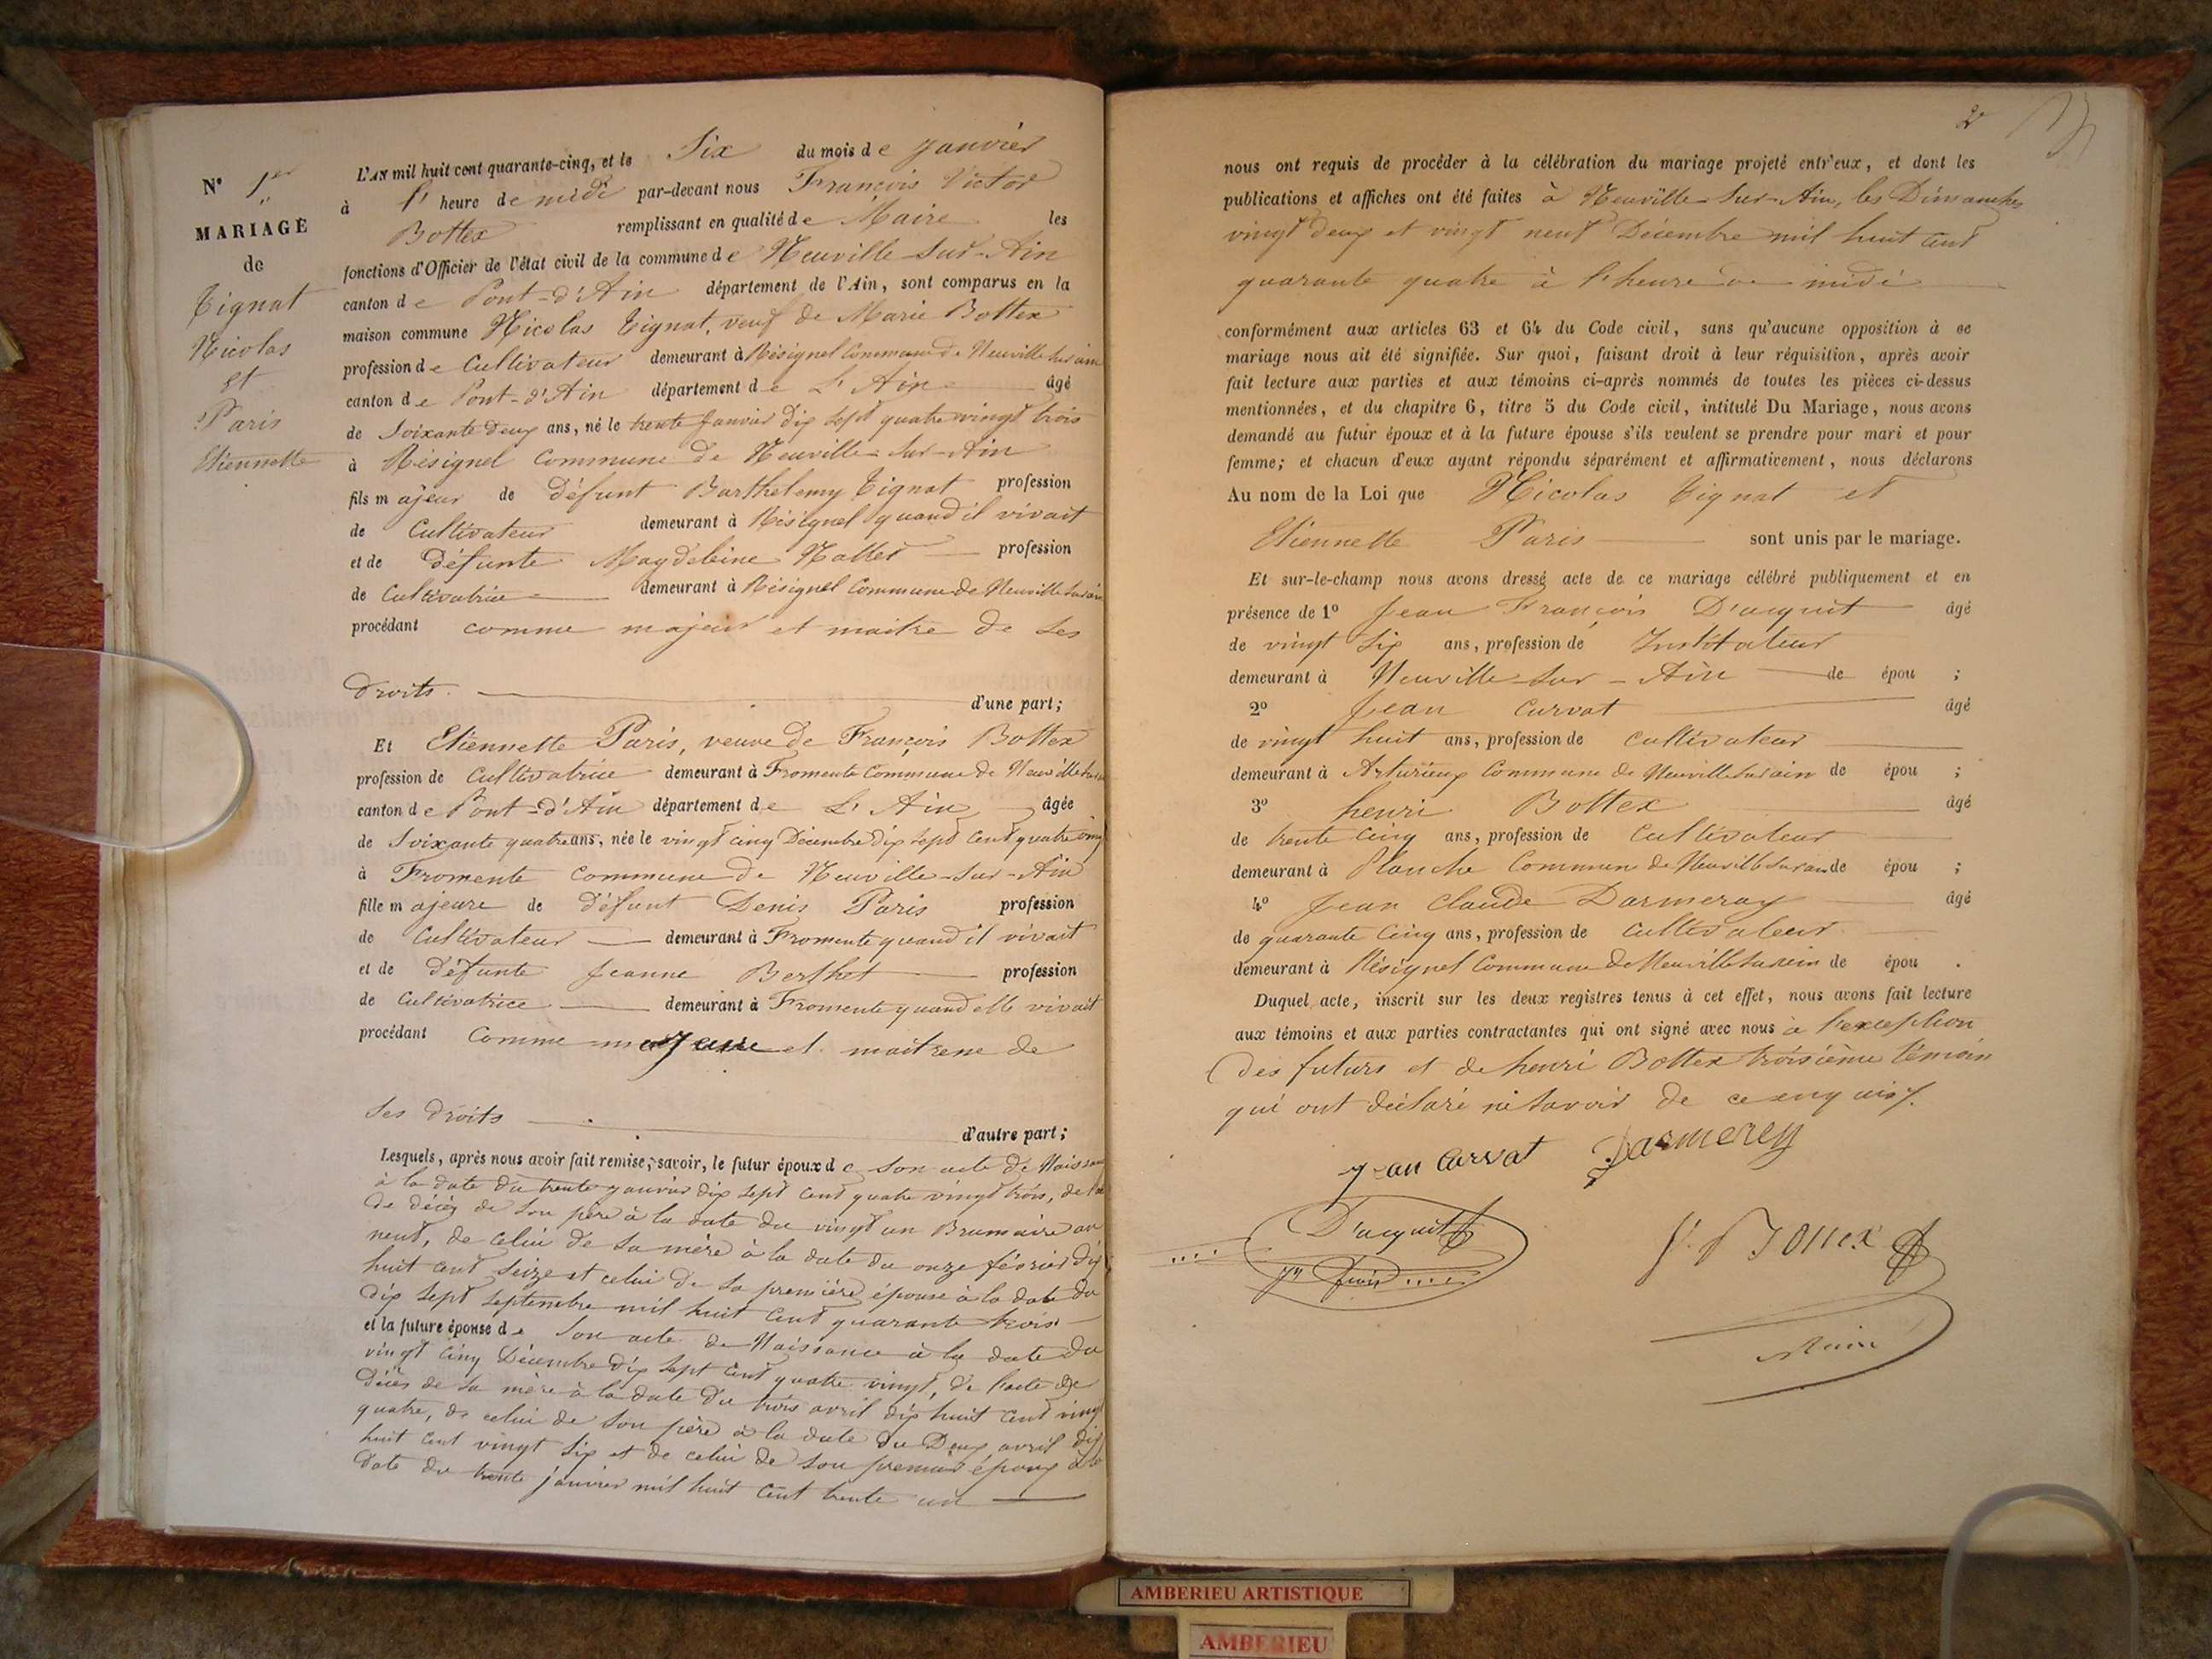 N° 1er
MARIAGE
de
Tignat
Nicolas
et
Paris
Etiennette
L'AN mil huit cent quarante-cinq, et le Six du mois de janvier
à l' heure de midi par-devant nous François Victor
Bottex remplissant en qualité de Maire les
fonctions d'Officier de l'état civil de la commune de Neuville-sur-Ain
canton de Pont-d'Ain département de l'Ain, sont comparus en la
maison commune Nicolas Tignat, veuf de Marie Bottex
profession de Cultivateur demeurant à Résignel Commune de Neuville sur ain
canton de Pont-d'Ain département de L'Ain âgé
de Soixante deux ans, né le trente Janvier dix sept quatre vingt trois
à Résignel Commune de Neuville-sur-Ain
fils majeur de défunt Barthelemy Tignat profession
de Cultivateur demeurant à Résignel quand il vivait
et de défunte Magdeleine Nallet profession
de Cultivatrice demeurant à Résignel Commune de Neuville sur ain
procédant comme majeur et maitre de ses
droits. d'une part;
Et Etiennette Paris, veuve de François Bottex
profession de Cultivatrice demeurant à Fromente Commune de Neuville sur ain
canton de Pont-d'Ain département de L'Ain âgée
de Soixante quatre ans, née le vingt cinq Décembre dix sept cent quatre vingt
à Fromente Commune de Neuville-sur-Ain
fille majeure de défunt Denis Paris profession
de Cultivateur demeurant à Fromente quand il vivait
et de défunte Jeanne Berthet profession
de Cultivatrice demeurant à Fromente quand elle vivait
procédant Comme majeure et maitresse de
ses droits d'autre part;
Lesquels, après nous avoir fait remise, savoir, le futur époux de son acte de Naissance
à la date du trente janvier dix sept cent quatre vingt trois, de l'acte
de décès de son père à la date du vingt un Brumaire an
neuf, de celui de sa mère à la date du onze février dix
huit cent seize et celui de sa première épouse à la date du
dix sept septembre mil huit cent quarante trois
et la future épouse de son acte de Naissance à la date du
vingt cinq Décembre dix sept cent quatre vingt, de l'acte de
décès de sa mère à la date du trois avril dix huit cent vingt
quatre, de celui de son père à la date du Deux avril dix
huit cent vingt six et de celui de son premier époux à la
date du trente janvier mil huit cent trente un
2
nous ont requis de procéder à la célébration du mariage projeté entr'eux, et dont les
publications et affiches ont été faites à Neuville-sur-Ain, les Dimanches
vingt deux et vingt neuf Décembre mil huit cent
quarante quatre à l'heure de midi
conformément aux articles 63 et 64 du Code civil, sans qu'aucune opposition à ce
mariage nous ait été signifiée. Sur quoi, faisant droit à leur réquisition, après avoir
fait lecture aux parties et aux témoins ci-après nommés de toutes les pièces ci-dessus
mentionnées, et du chapitre 6, titre 5 du Code civil, intitulé Du Mariage, nous avons
demandé au futur époux et à la future épouse s'ils veulent se prendre pour mari et pour
femme; et chacun d'eux ayant répondu séparément et affirmativement, nous déclarons
Au nom de la Loi que Nicolas Tignat et
Etiennette Paris sont unis par le mariage.
Et sur-le-champ nous avons dressé acte de ce mariage célébré publiquement et en
présence de 1° Jean François D'acquit âgé
de vingt six ans, profession de Instituteur
demeurant à Neuville-sur-Ain de épou ;
2° Jean Curvat âgé
de vingt huit ans, profession de cultivateur
demeurant à Arturieux Commune de Neuville sur ain de épou ;
3° henri Bottex âgé
de trente cinq ans, profession de Cultivateur
demeurant à Planche Commune de Neuville sur ain de épou ;
4° Jean Claude Darmeray âgé
de quarante cinq ans, profession de Cultivateur
demeurant à Résignel Commune de Neuville sur ain de épou .
Duquel acte, inscrit sur les deux registres tenus à cet effet, nous avons fait lecture
aux témoins et aux parties contractantes qui ont signé avec nous à l'exception
des futurs et de henri Bottex troisième témoin
qui ont déclaré ne savoir de ce enquis.
Jean Curvat Darmerey
D'acquit
f. Bottex
Maire
AMBERIEU ARTISTIQUE
AMBERIEU